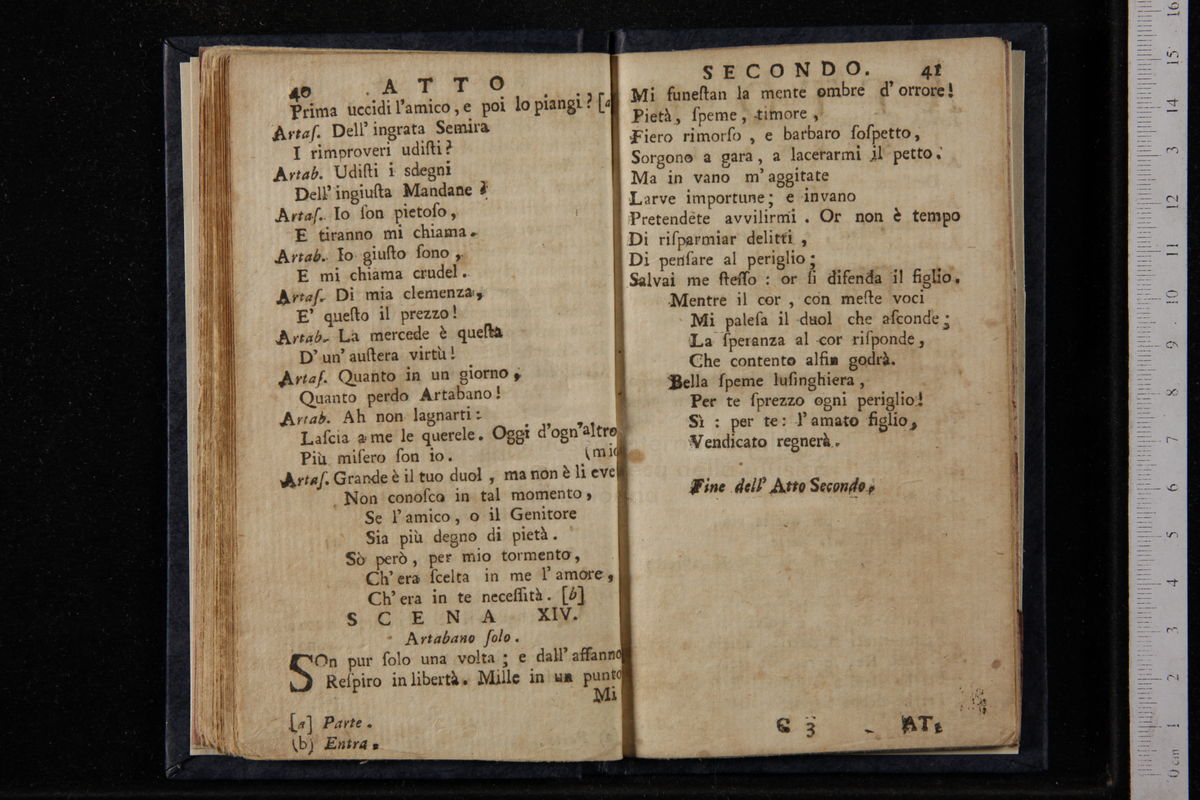 40 ATTO
Prima uccidi l'amico, e poi lo piangi? [a
Artaſ. Dell' ingrata Semira
I rimproveri udiſti?
Artab. Udiſti i sdegni
Dell' ingiuſta Mandane?
Artaſ. Io ſon pietoſo,
E tiranno mi chiama.
Artab. Io giuſto ſono,
E mi chiama crudel.
Artaſ. Di mia clemenza,
E' queſto il prezzo!
Artab. La mercede è queſta
D' un' auſtera virtù!
Artaſ. Quanto in un giorno,
Quanto perdo Artabano!
Artab. Ah non lagnarti:
Laſcia a me le querele. Oggi d'ogn'altro
Più miſero ſon io. (mio
Artaſ. Grande è il tuo duol, ma non è li eve
Non conoſco in tal momento,
Se l'amico, o il Genitore
Sia più degno di pietà.
Sò però, per mio tormento,
Ch' era ſcelta in me l'amore,
Ch' era in te neceſſità. [b]
SCENA XIV.
Artabano ſolo.
SOn pur ſolo una volta; e dall' affanno
Reſpiro in libertà. Mille in un punto
Mi
[a] Parte.
(b) Entra.
SECONDO. 41
Mi funeſtan la mente ombre d' orrore!
Pietà, ſpeme, timore,
Fiero rimorſo, e barbaro ſoſpetto,
Sorgono a gara, a lacerarmi il petto.
Ma in vano m' aggitate
Larve importune; e invano
Pretendete avvilirmi. Or non è tempo
Di riſparmiar delitti,
Di penſare al periglio;
Salvai me ſteſſo: or ſi difenda il figlio.
Mentre il cor, con meſte voci
Mi paleſa il duol che aſconde;
La ſperanza al cor riſponde,
Che contento alfin godrà.
Bella ſpeme luſinghiera,
Per te ſprezzo ogni periglio!
Sì: per te: l'amato figlio,
Vendicato regnerà.
Fine dell' Atto Secondo.
C 3 AT-
0 cm 1 2 3 4 5 6 7 8 9 10 11 12 13 14 15 16